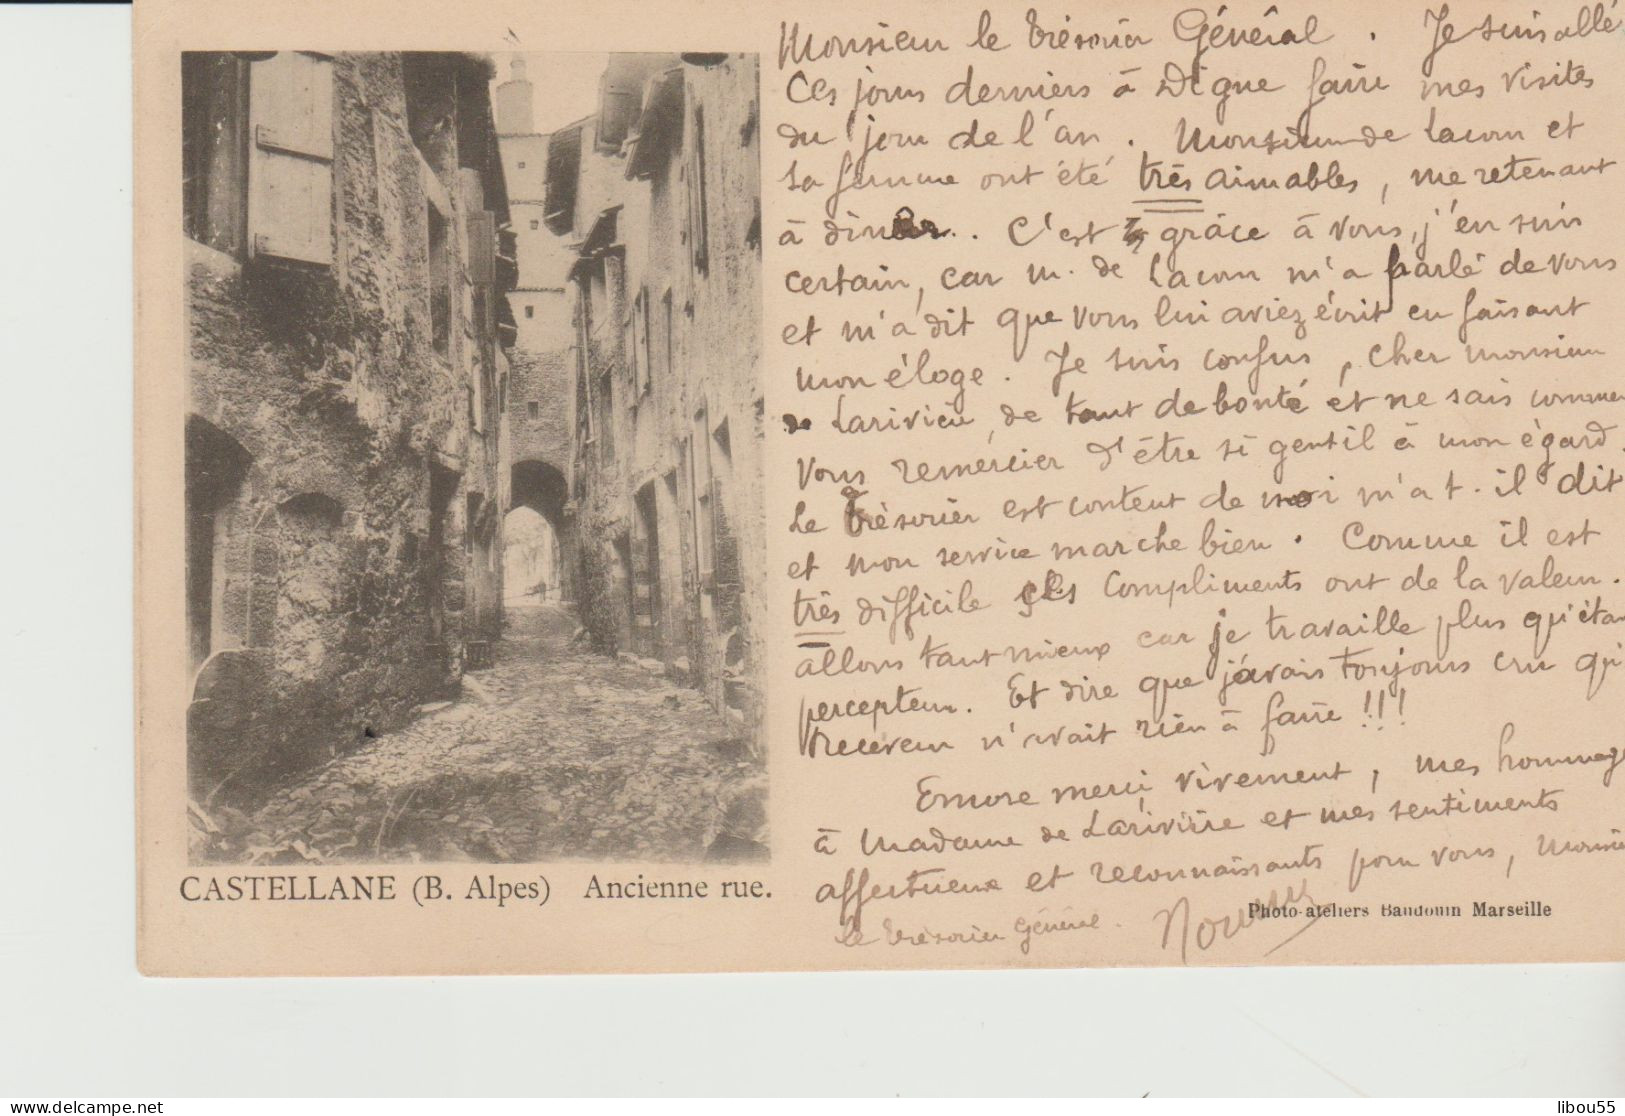 Monsieur le trésorier Général. Je suis allé
ces jours derniers à Digne faire mes visites
du jour de l'an. Monsieur de Lacour et
sa femme ont été très aimables, me retenant
à dîner. C'est grâce à vous, j'en suis
certain, car M. de Lacour m'a parlé de vous
et m'a dit que vous lui aviez écrit en faisant
mon éloge. Je suis confus, cher Monsieur
de Larivière, de tant de bonté et ne sais commen
vous remercier d'être si gentil à mon égard.
Le Trésorier est content de moi m'a t-il dit
et mon service marche bien. Comme il est
très difficile ses compliments ont de la valeur.
Allons tant mieux car je travaille plus qu'étan
percepteur. Et dire que j'avais toujours cru qu'
Receveur n'avait rien à faire!!!
Encore merci vivement, mes hommage
à Madame de Larivière et mes sentiments
affectueux et reconnaissants pour vous, Monsie
le trésorier Général.
CASTELLANE (B. Alpes) Ancienne rue.
Photo-ateliers Baudouin Marseille
libou55